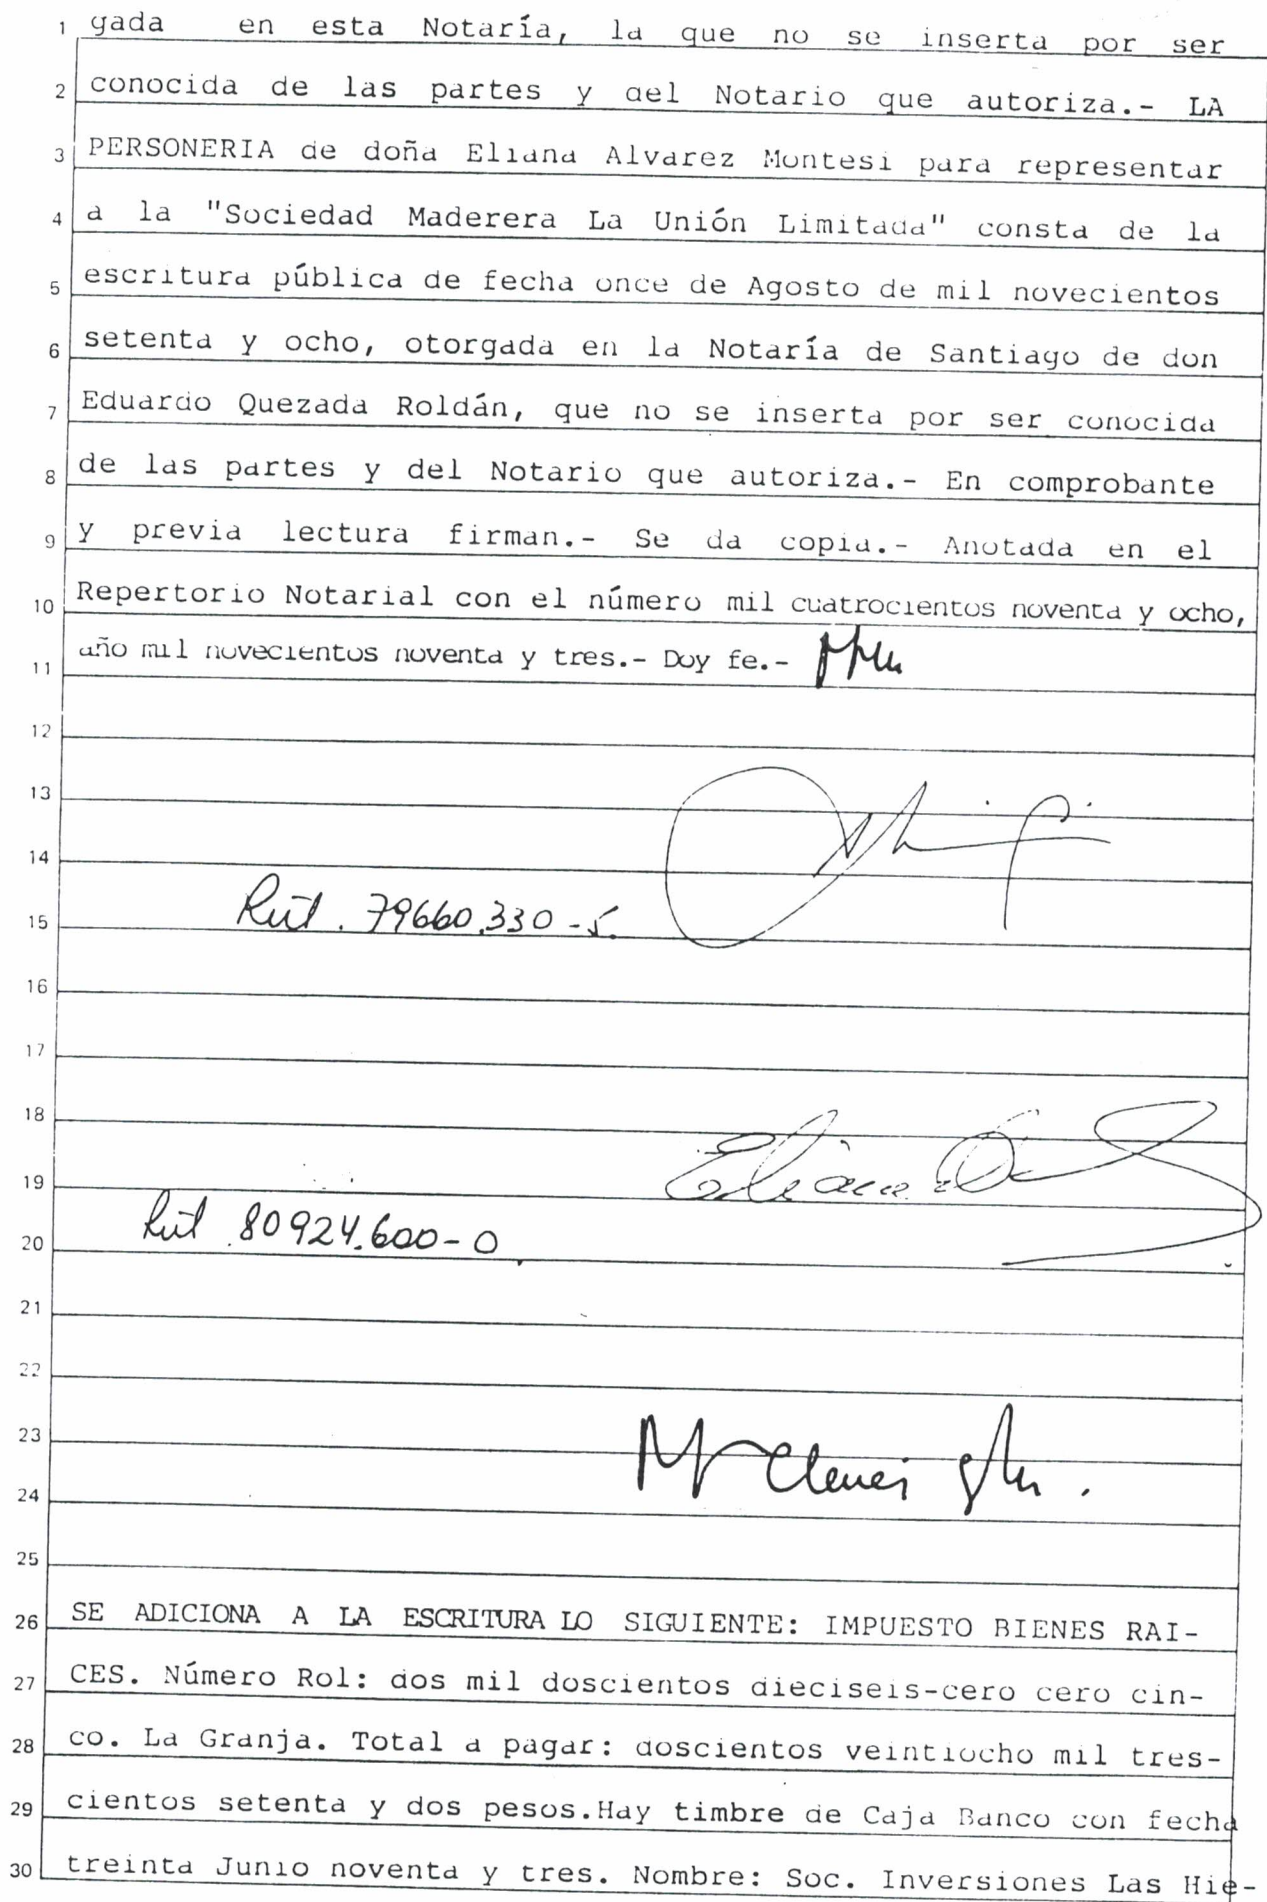 1 gada en esta Notaría, la que no se inserta por ser
2 conocida de las partes y del Notario que autoriza.- LA
3 PERSONERIA de doña Eliana Alvarez Montesi para representar
4 a la "Sociedad Maderera La Unión Limitada" consta de la
5 escritura pública de fecha once de Agosto de mil novecientos
6 setenta y ocho, otorgada en la Notaría de Santiago de don
7 Eduardo Quezada Roldán, que no se inserta por ser conocida
8 de las partes y del Notario que autoriza.- En comprobante
9 y previa lectura firman.- Se da copia.- Anotada en el
10 Repertorio Notarial con el número mil cuatrocientos noventa y ocho,
11 año mil novecientos noventa y tres.- Doy fe.-
12
13
14
15 Rut. 79660.330-5.
16
17
18
19 Eliana
20 Rut 80924.600-0
21
22
23
24
25
26 SE ADICIONA A LA ESCRITURA LO SIGUIENTE: IMPUESTO BIENES RAI-
27 CES. Número Rol: dos mil doscientos dieciseis-cero cero cin-
28 co. La Granja. Total a pagar: doscientos veintiocho mil tres-
29 cientos setenta y dos pesos.Hay timbre de Caja Banco con fecha
30 treinta Junio noventa y tres. Nombre: Soc. Inversiones Las Hie-